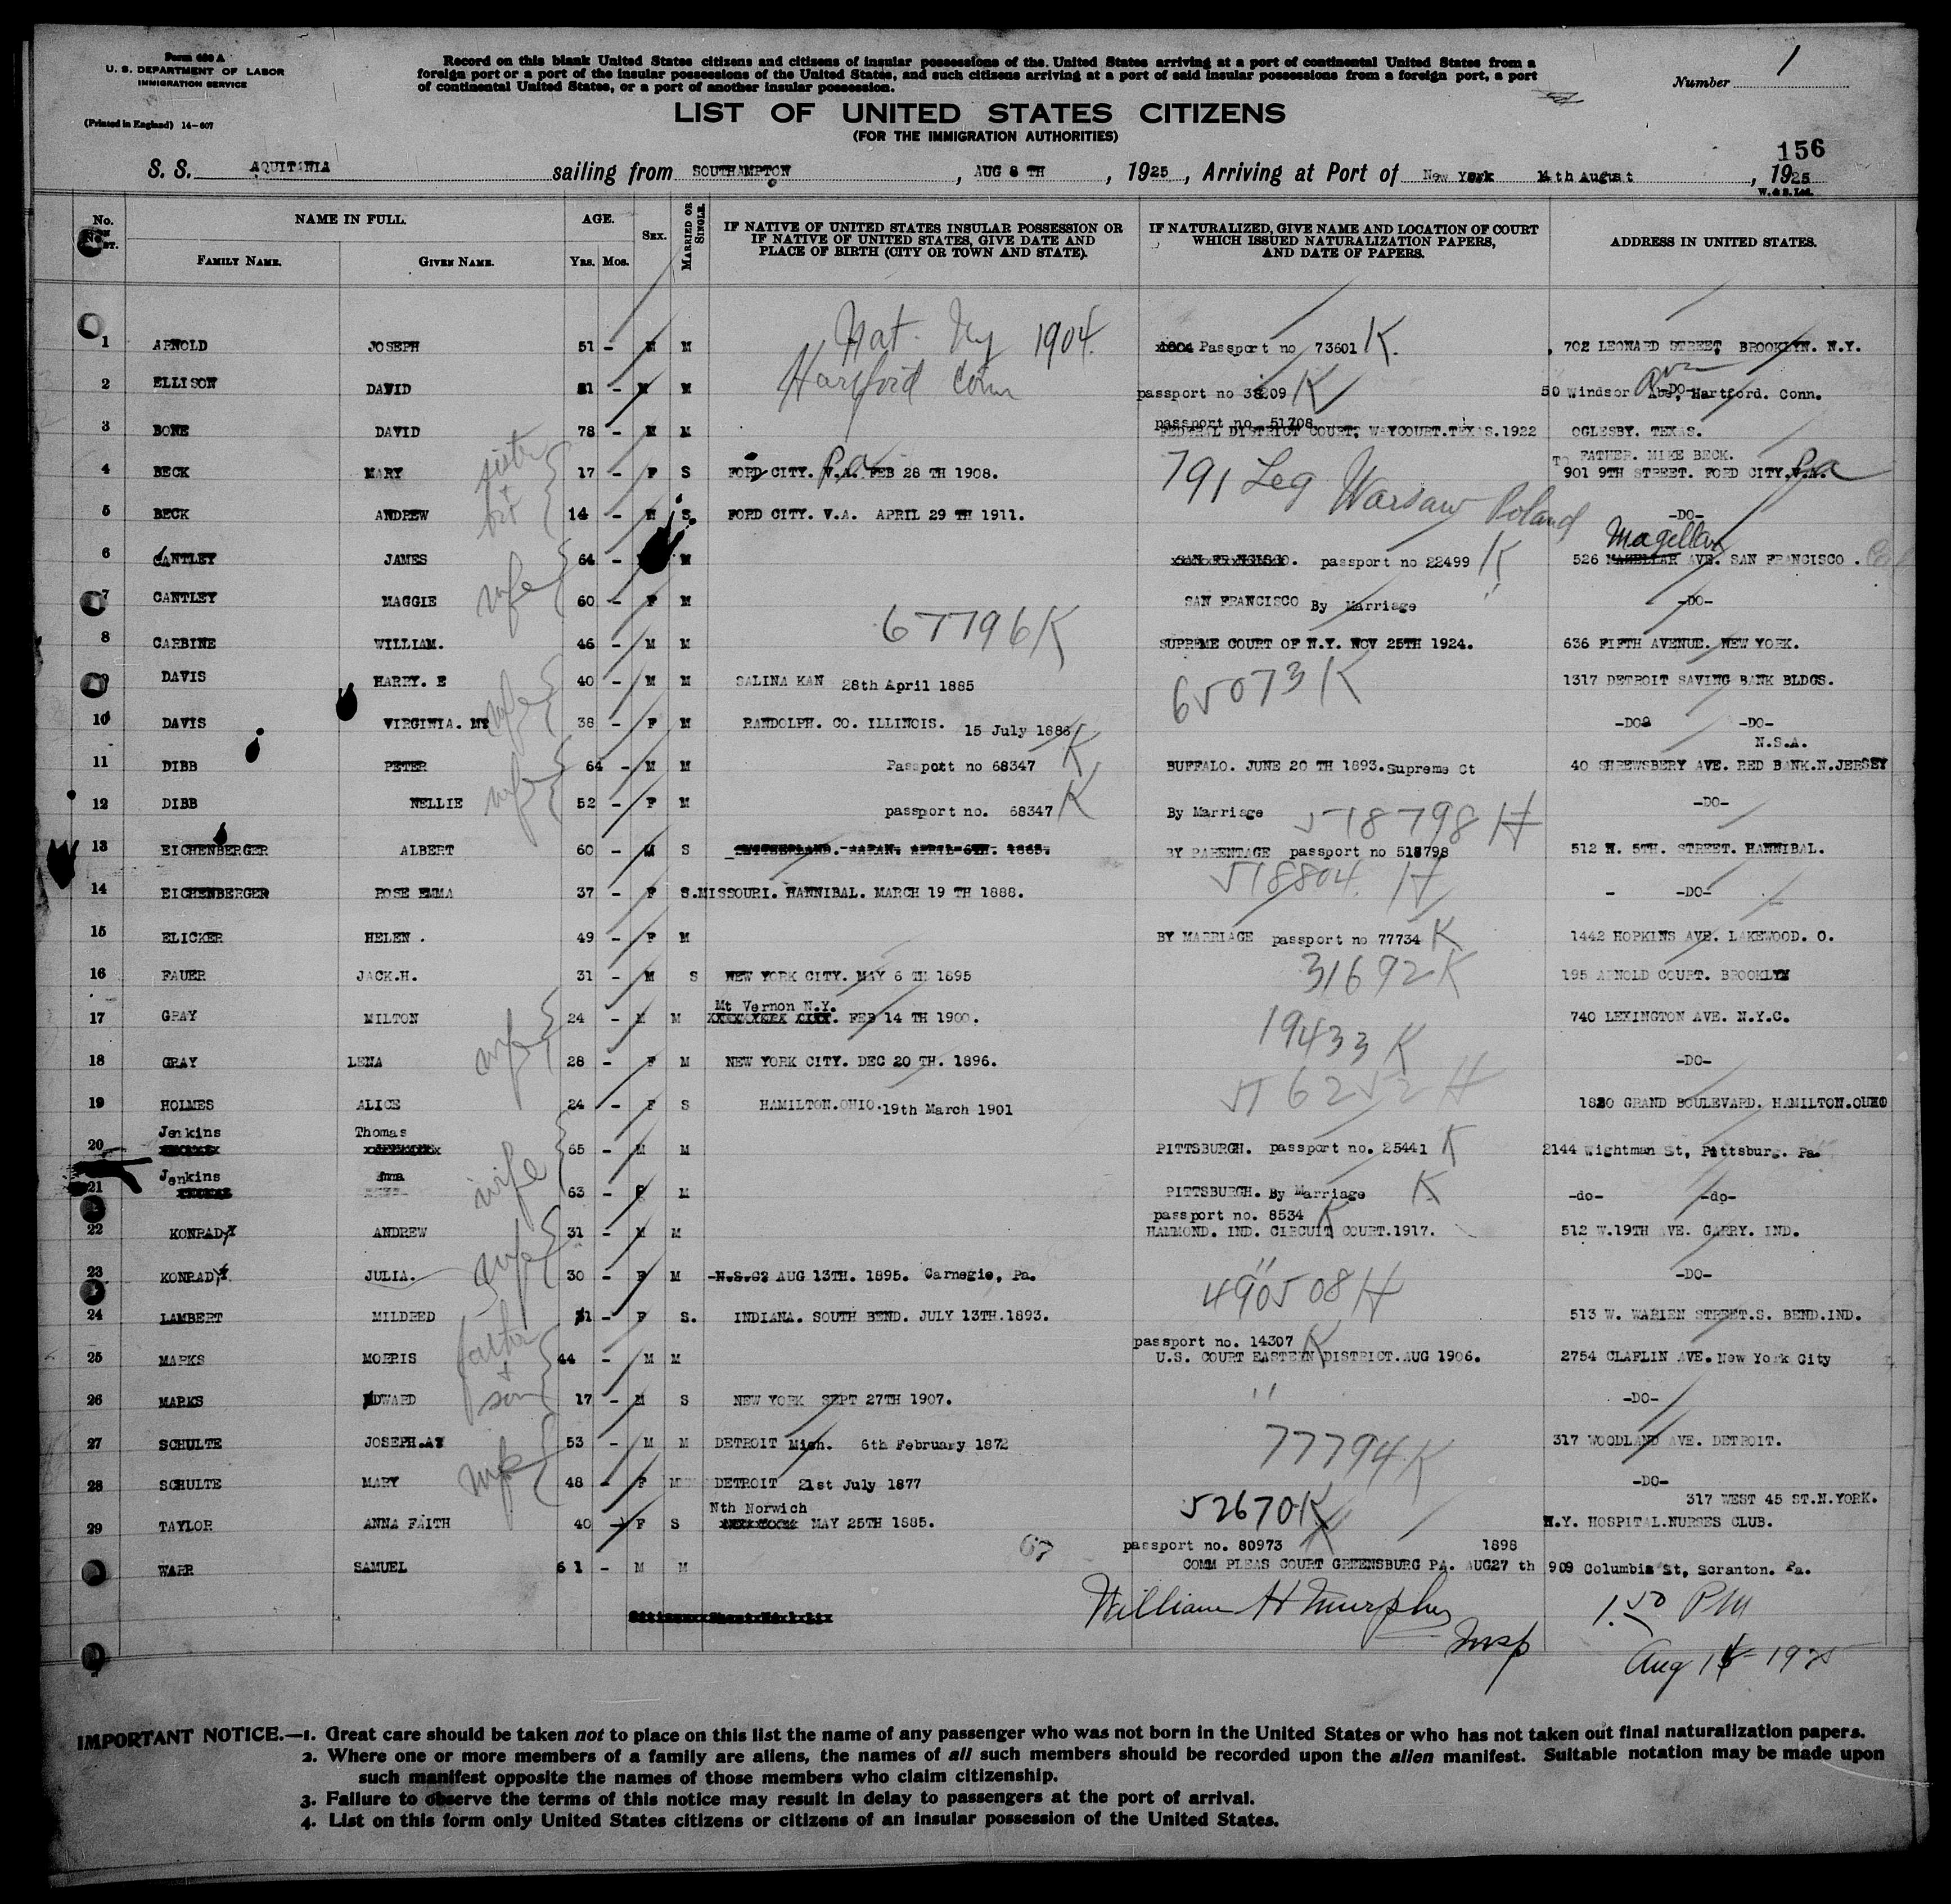 Form 630 A
U. S. DEPARTMENT OF LABOR
IMMIGRATION SERVICE
(Printed in England) 14-607
Record on this blank United States citizens and citizens of insular possessions of the United States arriving at a port of continental United States from a
foreign port or a port of the insular possessions of the United States, and such citizens arriving at a port of said insular possessions from a foreign port, a port
of continental United States, or a port of another insular possession.
Number 1
LIST OF UNITED STATES CITIZENS
(FOR THE IMMIGRATION AUTHORITIES)
156
S. S. AQUITANIA sailing from SOUTHAMPTON, AUG 8 TH, 1925, Arriving at Port of New York 14th August, 1925
W. & S. Ltd.
No. ON LIST. NAME IN FULL. FAMILY NAME. GIVEN NAME. AGE. Yrs. Mos. SEX. MARRIED OR SINGLE. IF NATIVE OF UNITED STATES INSULAR POSSESSION OR IF NATIVE OF UNITED STATES, GIVE DATE AND PLACE OF BIRTH (CITY OR TOWN AND STATE). IF NATURALIZED, GIVE NAME AND LOCATION OF COURT WHICH ISSUED NATURALIZATION PAPERS, AND DATE OF PAPERS. ADDRESS IN UNITED STATES.
1 ARNOLD JOSEPH 51 - M M Nat. Ny 1904. Passport no 73601 K. 702 LEONARD STREET BROOKLYN. N.Y.
2 ELLISON DAVID - M M Hartford Conn passport no 38209 K 50 Windsor Ave, Hartford. Conn.
passport no. 51708
3 BONE DAVID 78 - M M FEDERAL DISTRICT COURT, WAYCOURT.TEXAS.1922 OGLESBY. TEXAS.
TO FATHER. MIKE BECK.
4 BECK MARY sister 17 - F S FORD CITY. Pa FEB 28 TH 1908. 791 Leg Warsaw Poland 901 9TH STREET. FORD CITY. Pa
5 BECK ANDREW 14 - M S FORD CITY. V.A. APRIL 29 TH 1911. -DO-
Magellan
6 CANTLEY JAMES 64 - M passport no 22499 K 526 MAZELLAR AVE. SAN FRANCISCO. Cal
7 CANTLEY MAGGIE wife 60 - F M SAN FRANCISCO By Marriage -DO-
8 CARBINE WILLIAM. 46 - M M 67796 K SUPREME COURT OF N.Y. NOV 25TH 1924. 636 FIFTH AVENUE. NEW YORK.
9 DAVIS HARRY. E 40 - M M SALINA KAN 28th April 1885 65073 K 1317 DETROIT SAVING BANK BLDGS.
10 DAVIS VIRGINIA. wife 38 - F M RANDOLPH. CO. ILLINOIS. 15 July 1886 -DO- -DO-
N.S.A.
11 DIBB PETER 64 - M M Passport no 68347 K BUFFALO. JUNE 20 TH 1893. Supreme Ct 40 SHREWSBERY AVE. RED BANK.N.JERSEY
12 DIBB NELLIE wife 52 - F M passport no. 68347 K By Marriage -DO-
518798 H
13 EICHENBERGER ALBERT 60 - M S BY PARENTAGE passport no 518798 512 N. 5TH. STREET. HANNIBAL.
518804 H
14 EICHENBERGER ROSE EMMA 37 - F S. MISSOURI. HANNIBAL. MARCH 19 TH 1888. - -DO-
15 ELICKER HELEN. 49 - F M BY MARRIAGE passport no 77734 K 1442 HOPKINS AVE. LAKEWOOD. O.
16 FAUER JACK.H. 31 - M S NEW YORK CITY. MAY 6 TH 1895 31692 K 195 ARNOLD COURT. BROOKLYN
Mt Vernon N.Y.
17 GRAY MILTON 24 - M M FEB 14 TH 1900. 19433 K 740 LEXINGTON AVE. N.Y.C.
18 GRAY LENA wife 28 - F M NEW YORK CITY. DEC 20 TH. 1896. -DO-
19 HOLMES ALICE 24 - F S HAMILTON.OHIO. 19th March 1901 556252 H 1820 GRAND BOULEVARD. HAMILTON.OHIO
20 Jenkins Thomas 65 - M M PITTSBURGH. passport no. 25441 K 2144 Wightman St, Pittsburg. Pa.
21 Jenkins wife 63 - F M PITTSBURGH. By Marriage K -do- -do-
passport no. 8534 K
22 KONRADY ANDREW 31 - M M HAMMOND. IND. CIRCUIT COURT.1917. 512 W.19TH AVE. GARRY. IND.
23 KONRADY JULIA. wife 30 - F M AUG 13TH. 1895. Carnegie, Pa. " -DO-
24 LAMBERT MILDRED 31 - F S. INDIANA. SOUTH BEND. JULY 13TH.1893. 490508 H 513 W. WARIEN STREET.S. BEND.IND.
passport no. 14307 K
25 MARKS MORRIS father + son 44 - M M U.S. COURT EASTERN DISTRICT.AUG 1906. 2754 CLAFLIN AVE. New York City
26 MARKS EDWARD 17 - M S NEW YORK SEPT 27TH 1907. " -DO-
27 SCHULTE JOSEPH.A 53 - M M DETROIT Mich. 6th February 1872 77794 K 317 WOODLAND AVE. DETROIT.
28 SCHULTE MARY wife 48 - F M DETROIT 21st July 1877 -DO-
Nth Norwich 317 WEST 45 ST.N.YORK.
29 TAYLOR ANNA FAITH 40 - F S MAY 25TH 1885. 52670 K N.Y. HOSPITAL.NURSES CLUB.
passport no. 80973 1898
WARR SAMUEL 61 - M M COMM PLEAS COURT GREENSBURG PA. AUG27 th 909 Columbia St, Scranton. Pa.
William H Murphy
Insp
1.50 PM
Aug 14 1925
IMPORTANT NOTICE.—1. Great care should be taken not to place on this list the name of any passenger who was not born in the United States or who has not taken out final naturalization papers.
2. Where one or more members of a family are aliens, the names of all such members should be recorded upon the alien manifest. Suitable notation may be made upon
such manifest opposite the names of those members who claim citizenship.
3. Failure to observe the terms of this notice may result in delay to passengers at the port of arrival.
4. List on this form only United States citizens or citizens of an insular possession of the United States.